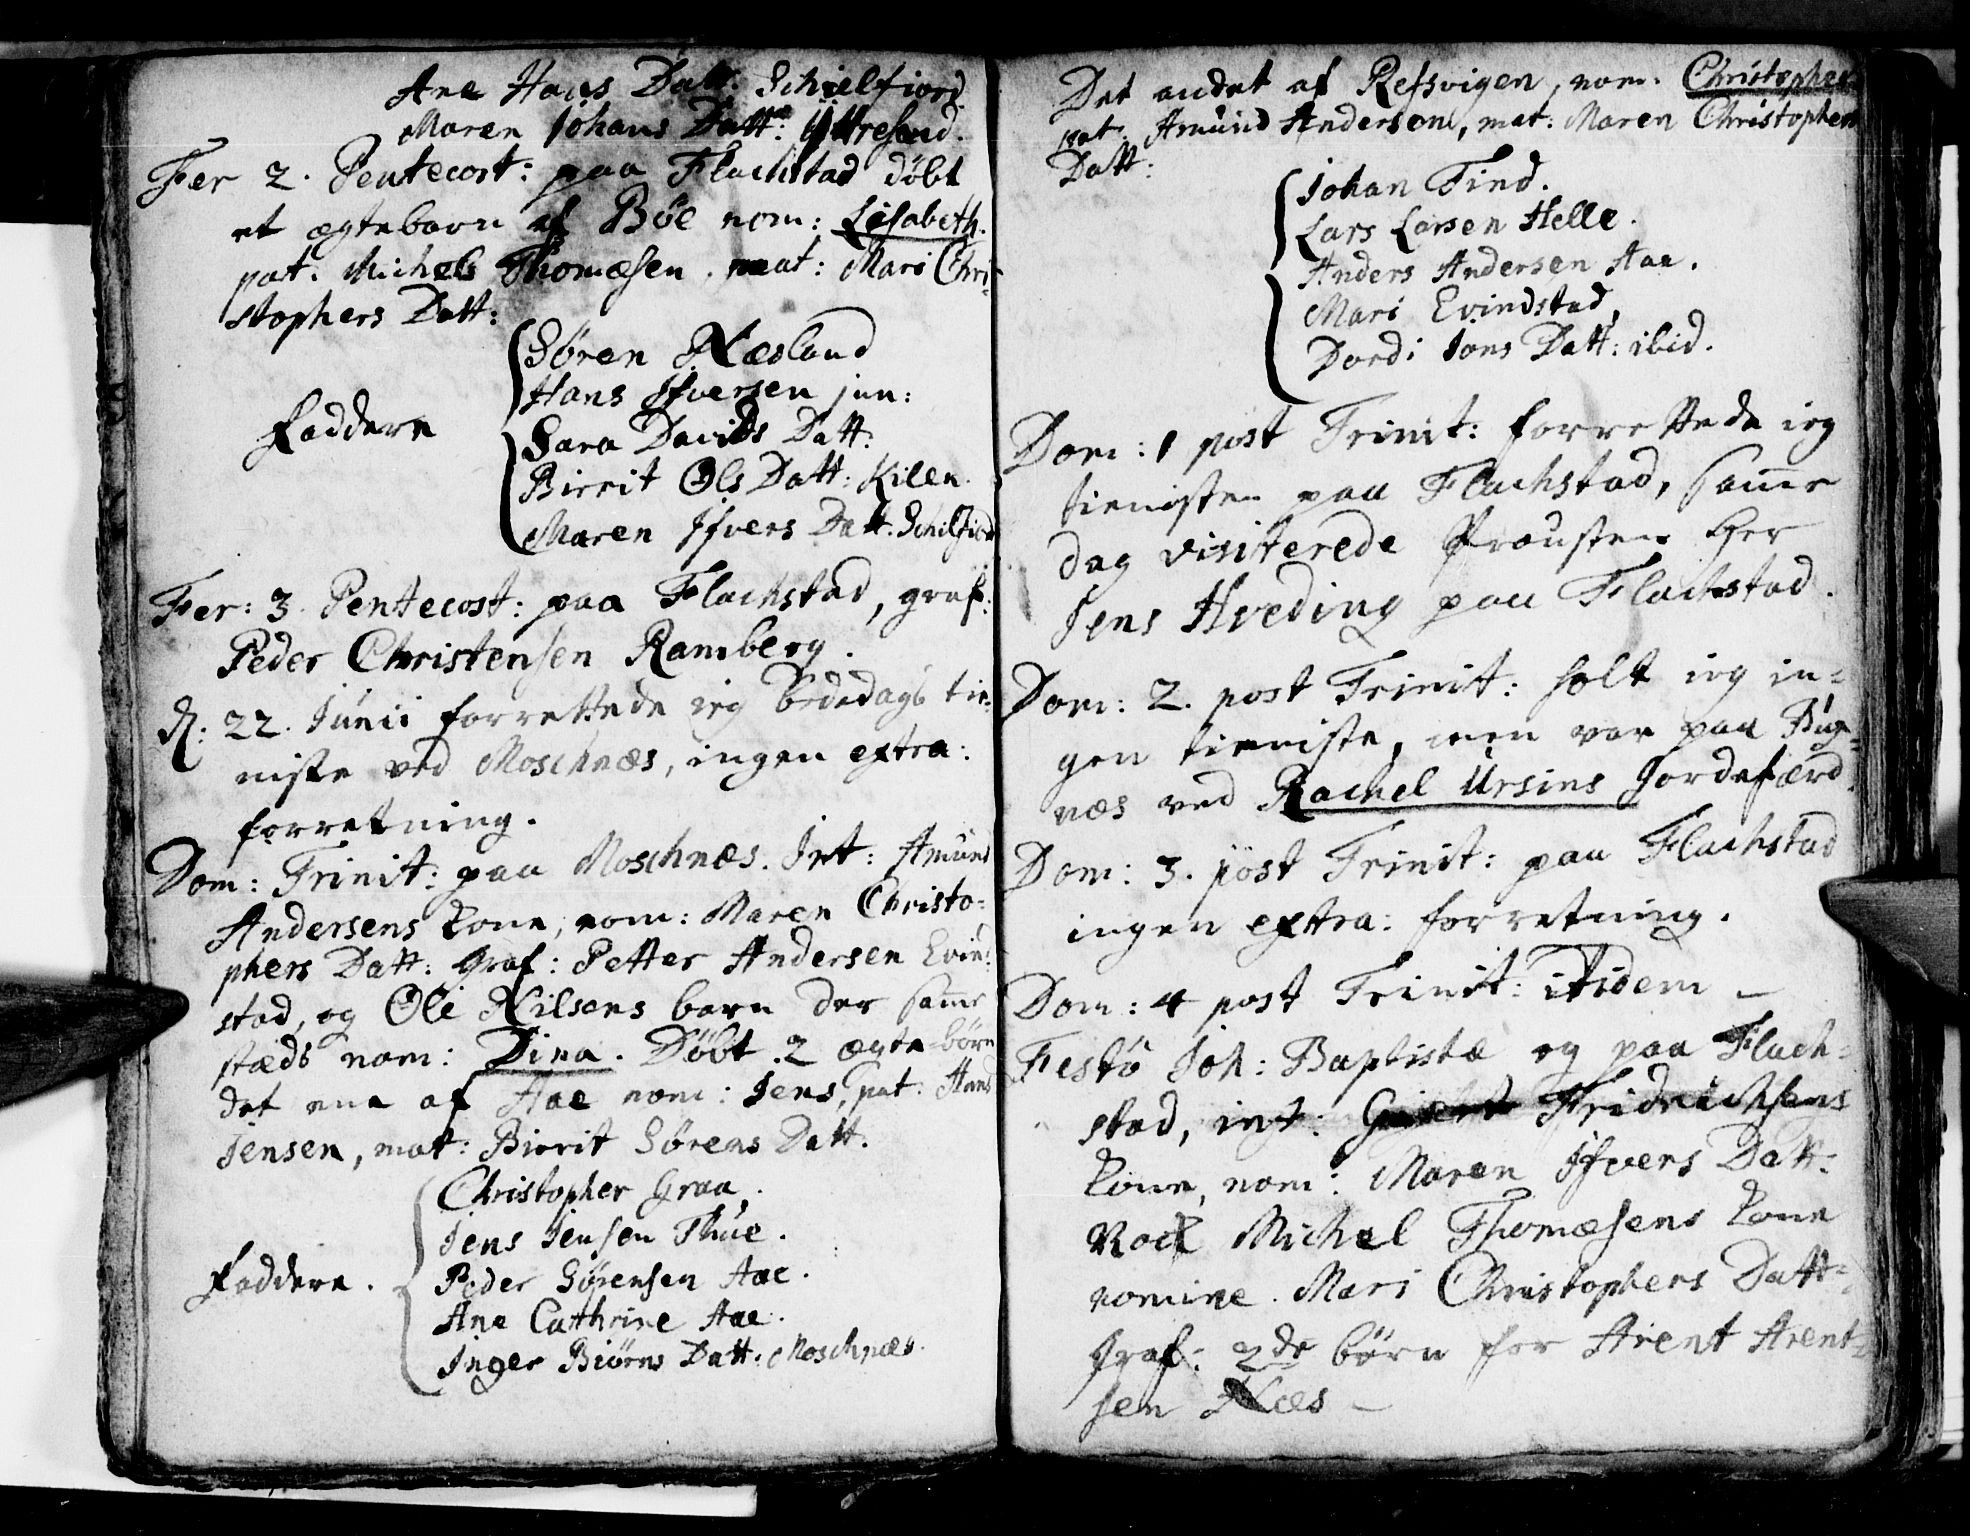 Ane Hans Datt: Schielfiord.
Maren Johans Datt: Yttresand.
Fer 2. Pentecost: paa Flachstad døbt
et ægtebarn af Bøe nom: Lisabeth.
pat. Michels Thomæsen. mat: Mari Chri-
stophers Datt:
Søren Næsland
Hans Ifversen jun:
Faddere
Sara Davids Datt:
Birrit Ols Datt: Kilen.
Maren Ifvers Datt. Schilfiord
Fer: 3. Pentecost: paa Flachstad, graf:
Peder Christensen Ramberg.
d: 22. Junii forrettede ieg bededags tie-
niste ved Moschnæs, ingen extra:
forretning.
Dom: Trinit: paa Moschnæs. Int: Amund
Andersens kone, nom: Maren Christo-
phers Datt: Graf: Petter Andersen Evin-
stad, og Ole Nilsens barn der samme
stæds nom: Dina. Døbt 2 ægte børn
det ene af Aae nom: Jens, pat: Hans
Jensen, mat: Birrit Sørens Datt.
Christopher Graa.
Jens Jensen Thue.
Faddere.
Peder Sørensen Aae.
Ane Cathrine Aae.
Inger Biørns Datt: Moschnæs.
Det andet af Refsvigen, nom. Christopher
pat. Amund Andersen, mat: Maren Christophers
Datt:
Johan Find.
Lars Larsen Helle.
Anders Andersen Aae.
Mari Evindstad,
Dordi Jons Datt: ibid.
Dom: 1 post Trinit: forrettede ieg
tienisten paa Flachstad, samme
dag visiterede Prousten Her
Jens Hveding paa Flachstad.
Dom: 2. post Trinit: holt ieg in-
gen tieniste, men var paa Bux-
næs ved Rachel Ursins Jordefærd.
Dom: 3. post Trinit: paa Flachstad
ingen extra: forretning.
Dom: 4 post Trinit: itidem —
Festo Joh: Baptistæ og paa Flach-
stad, int: Fridrichsens
kone, nom: Maren Ifvers Datt:
Nock Michel Thomæsens kone
nomine. Mari Christophers Datt-
Graf: 2de børn for Arent Arent-
sen Næs —